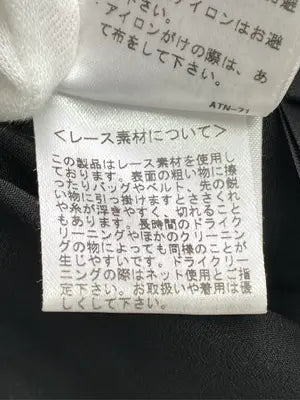 アイロンはお避
け下さい。
アイロンがけの際は、あ
て布をして下さい。
ATN-21
<レース素材について>
この製品はレース素材を使用し
ております。表面の粗い物に擦
ったりバッグやベルト、先の鋭
い物に引っ掛けますとささくれ
や糸が浮きやすく、切れること
もあります。長時間のドライク
リーニングやほかのクリーニン
グの物によっても同様のことが
生じやすいです。ドライクリー
ニングの際はネット使用とご指
定下さい。お取扱いや着用は優
しくして下さい。